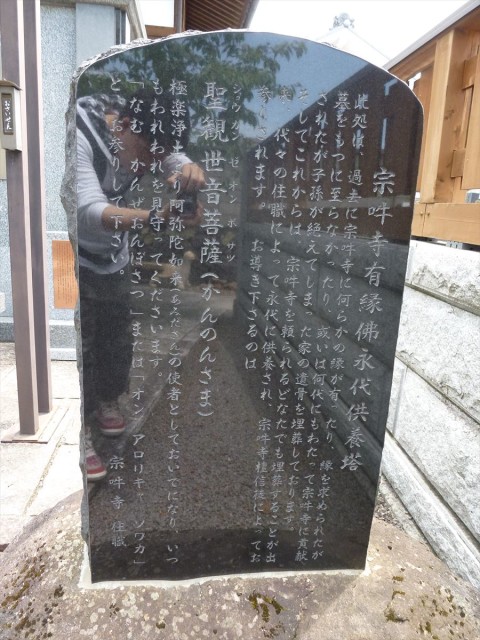 宗吽寺有縁佛永代供養塔
此処は、過去に宗吽寺に何らかの縁が有ったり、縁を求められたが
墓をもつに至らなかったり、或いは何代にもわたって宗吽寺に貢献
されたが子孫が絶えてしまった家の遺骨を埋葬しております。
そしてこれからは、宗吽寺を頼られるどなたでも埋葬することが出
来、代々の住職によって永代に供養され、宗吽寺檀信徒によってお
参りされます。 お導き下さるのは
ショウカンゼオンボサツ
聖観世音菩薩(かんのんさま)
極楽浄土より阿弥陀如来(あみださん)の使者としておいでになり、いつ
もわれわれを見守ってくださいます。
「なむ かんぜおんぼさつ」または「オン アロリキャ ソワカ」
と、お参りして下さい。
宗吽寺 住職
おさいせん